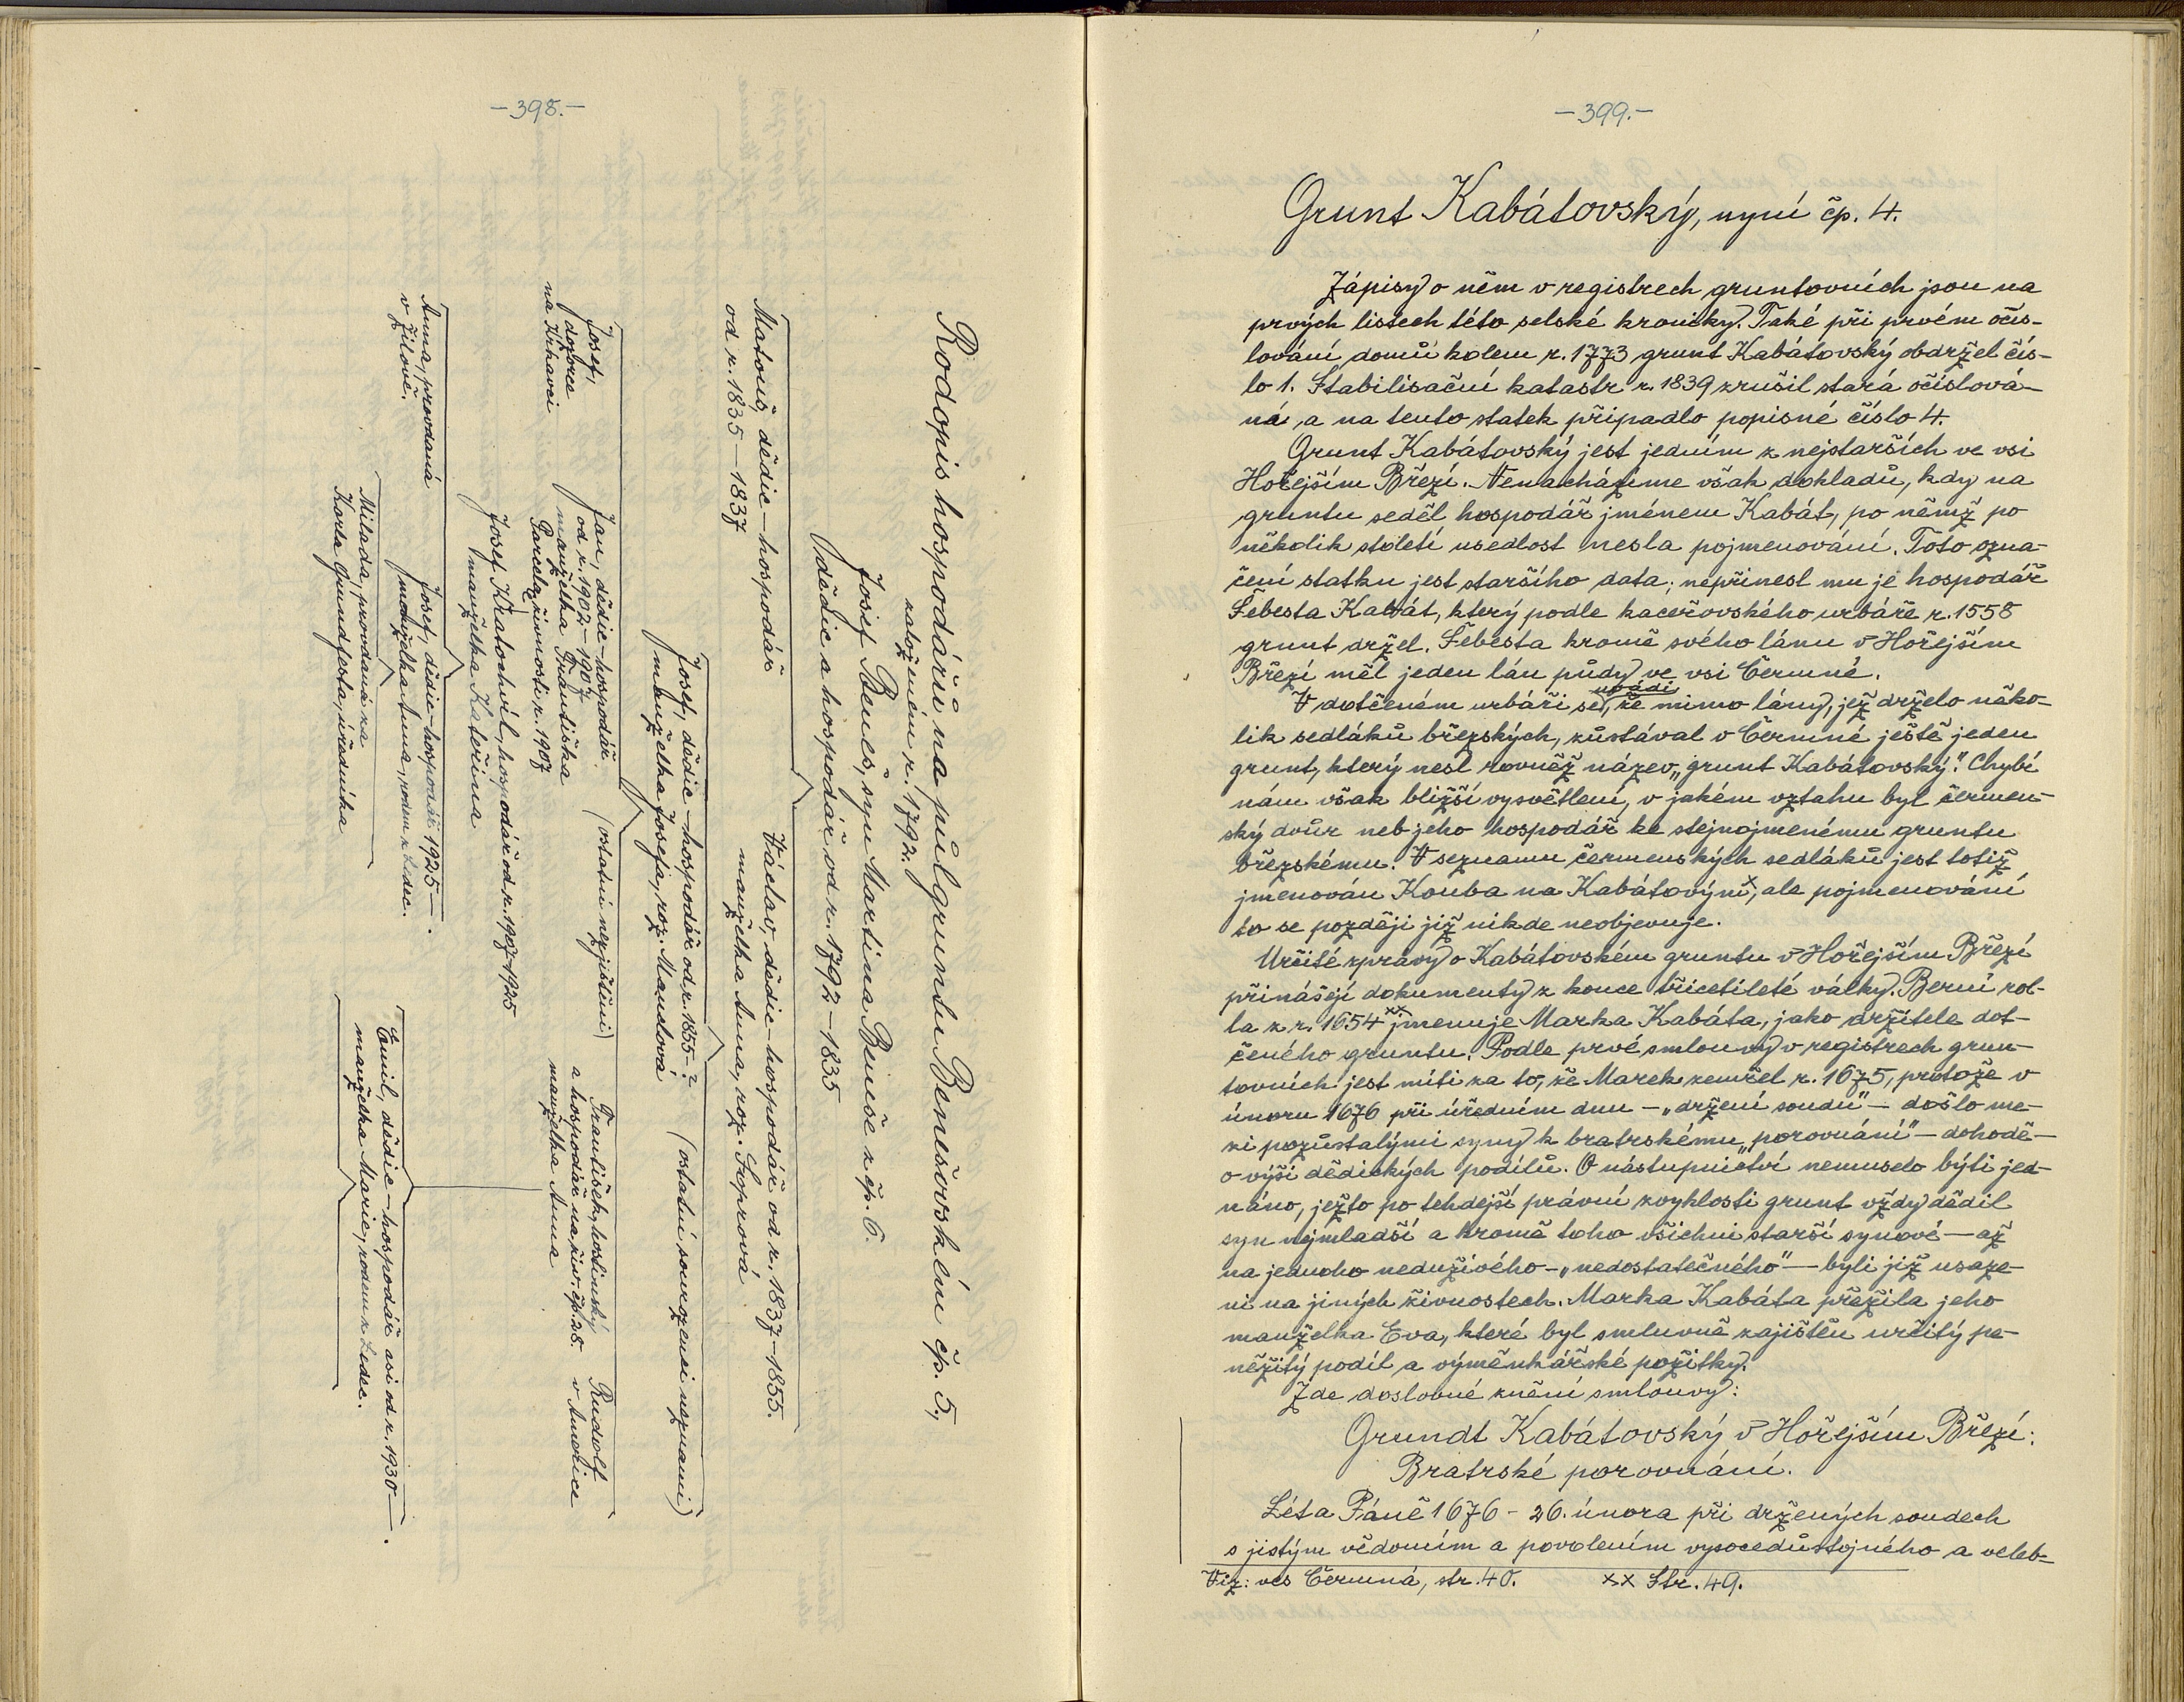 —398.—
Rodopis hospodářů na půlgruntu Benešovském čp. 5,
založeném r. 1792.
Josef Beneš, syn Martina Beneše z čp. 6.
dědic a hospodář od r. 1792—1835
Matouš, dědic—hospodář
od r. 1835—1837
Václav, dědic—hospodář od r. 1837—1855.
manželka Anna, roz. Soprová
Josef, dědic—hospodář od r. 1855—?
manželka Josefa, roz. Mandová
(ostatní sourozenci neznámi)
Josef,
dozorce
na Křkavci
Jan, dědic—hospodář
od r. 1902—1907
manželka Františka
Parcelaz živnosti r. 1907
(ostatní nezjištěni)
František, hostinský
a hospodář na živ. čp. 28.
manželka Anna
Rudolf
v Americe
Josef Kratochvíl, hospodář od r. 1907—1925
manželka Kateřina
Anna, provdaná
v Žilově.
Josef, dědic—hospodář 1925—.
manželka Anna, rodem z Ledec.
Emil, dědic—hospodář asi od r. 1930—.
manželka Marie, rodem z Ledec.
Milada, provdaná za
Karla Grundfesta, úředníka
—399.—
Grunt Kabátovský, nyní čp. 4.
Zápisy o něm v registrech gruntovních jsou na
prvých listech této selské kroniky. Také při prvém očís-
lování domů kolem r. 1773 grunt Kabátovský obdržel čís-
lo 1. Stabilisační katastr r. 1839 zrušil stará očíslová-
ná, a na tento statek připadlo popisné číslo 4.
Grunt Kabátovský jest jedním z nejstarších ve vsi
Hořejším Březí. Nenacházíme však dokladů, kdy na
gruntu seděl hospodář jménem Kabát, po němž po
několik století usedlost nesla pojmenování. Toto ozna-
čení statku jest staršího data; nepřinesl mu je hospodář
Šebesta Kabát, který podle kaceřovského urbáře r. 1558
grunt držel. Šebesta kromě svého lánu v Hořejším
Březí měl jeden lán půdy ve vsi Čermné.
V dotčeném urbáři se uvádí, že mimo lány, jež drželo něko-
lik sedláků březských, zůstával v Čermné ještě jeden
grunt, který nesl rovněž název „grunt Kabátovský.“ Chybí
nám však bližší vysvětlení, v jakém vztahu byl čermen-
ský dvůr neb jeho hospodář ke stejnojmenému gruntu
březskému. V seznamu čermenských sedláků jest totiž
jmenován Kouba na Kabátovým x, ale pojmenování
to se později již nikde neobjevuje.
Určité zprávy o Kabátovském gruntu v Hořejším Březí
přinášejí dokumenty z konce třicetileté války. Berní rol-
la z r. 1654 xx jmenuje Marka Kabáta, jako držitele dot-
čeného gruntu. Podle prvé smlouvy v registrech grun-
tovních jest míti za to, že Marek zemřel r. 1675, protože v
únoru 1676 při úředním dnu — „držení soudu“ — došlo me-
zi pozůstalými syny k bratrskému „porovnání“ — dohodě —
o výši dědických podílů. O nástupnictví nemuselo býti jed-
náno, ježto po tehdejší právní zvyklosti grunt vždy dědil
syn nejmladší a kromě toho všichni starší synové — až
na jednoho neduživého — „nedostatečného“ — byli již usaze-
ni na jiných živnostech. Marka Kabáta přežila jeho
manželka Eva, které byl smluvně zajištěn určitý pe-
něžitý podíl a výměnkářské požitky.
Zde doslovné znění smlouvy:
Grundt Kabátovský v Hořejším Březí:
Bratrské porovnání.
Léta Páně 1676 - 26. února při držených soudech
s jistým vědomím a povolením vysocedůstojného a veleb-
Viz: ves Čermná, str. 40. xx Str. 49.